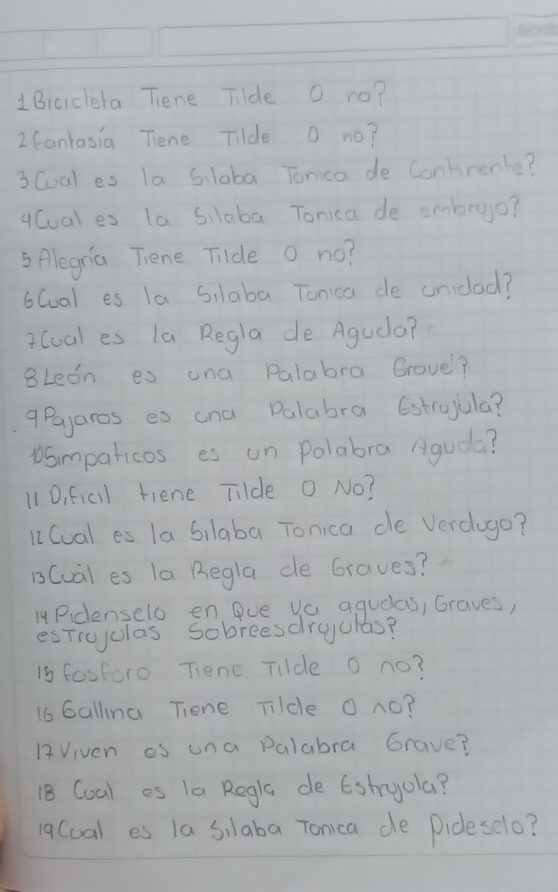 Scrib
1 Bicicleta Tiene Tilde O no?
2 fantasía Tiene Tilde O no?
3 Cual es la Silaba Tonica de Continente?
4 Cual es la Silaba Tonica de embrujo?
5 Alegría Tiene Tilde O no?
6 Cual es la Silaba Tonica de unidad?
7 Cual es la Regla de Aguda?
8 León es una Palabra Grave?
9 Pajaros es una Palabra Estrujula?
10 Simpaticos es un Palabra Aguda?
11 Dificil tiene Tilde O No?
12 Cual es la Silaba Tonica de Verdugo?
13 Cuál es la Regla de Graves?
14 Pidenselo en Que va agudas, Graves,
esTrujulas Sobreesdrujulas?
15 fosforo Tiene Tilde O no?
16 Gallina Tiene Tilde O no?
17 Viven es una Palabra Grave?
18 Cual es la Regla de Estrujula?
19 Cual es la Silaba Tonica de Pideselo?